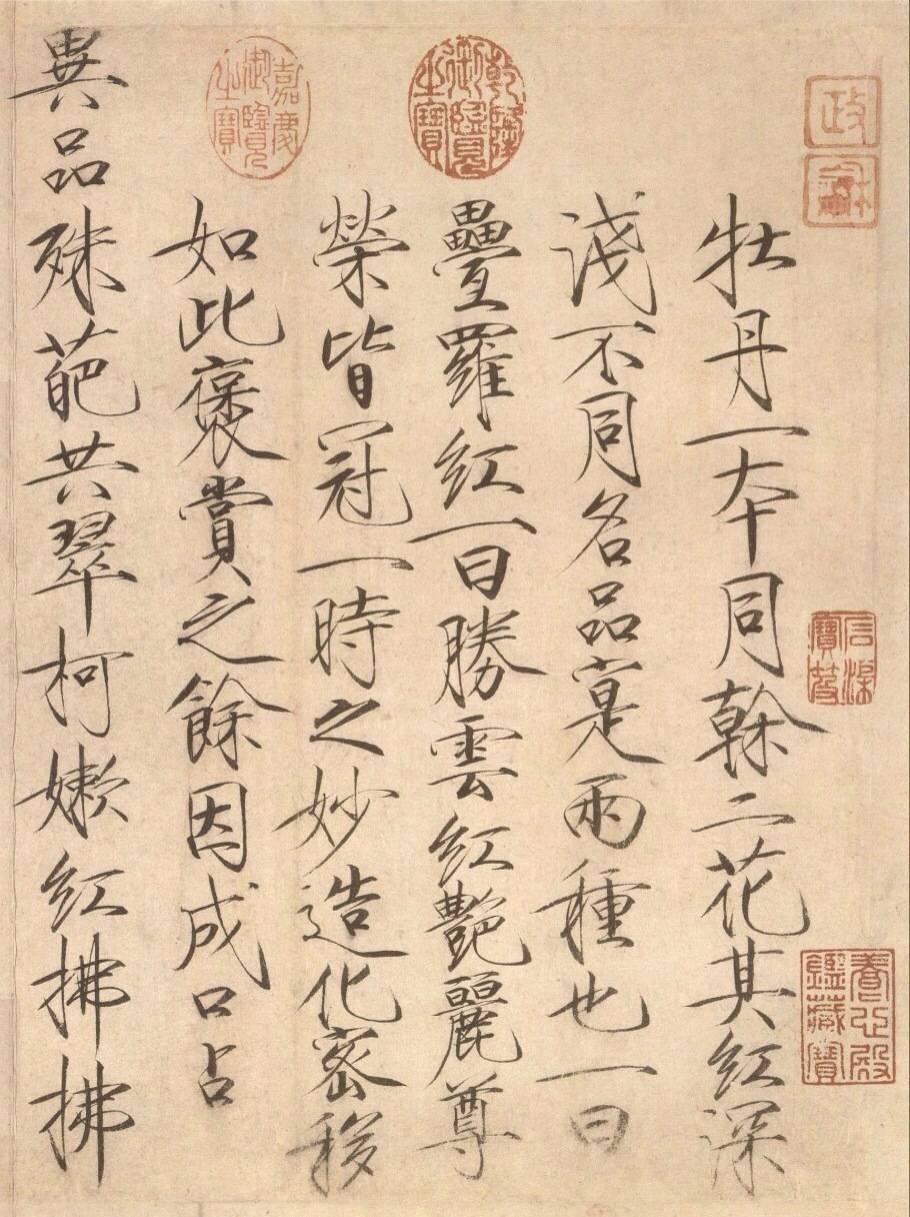 政龢
石渠寶笈
養心殿鑑藏寶
牡丹一本同榦二花其紅深
淺不同名品寔兩種也一曰
乾隆御覽之寶
疊羅紅一曰勝雲紅艷麗尊
榮皆冠一時之妙造化密移
嘉慶御覽之寶
如此褒賞之餘因成口占
異品殊葩共翠柯嫩紅拂拂